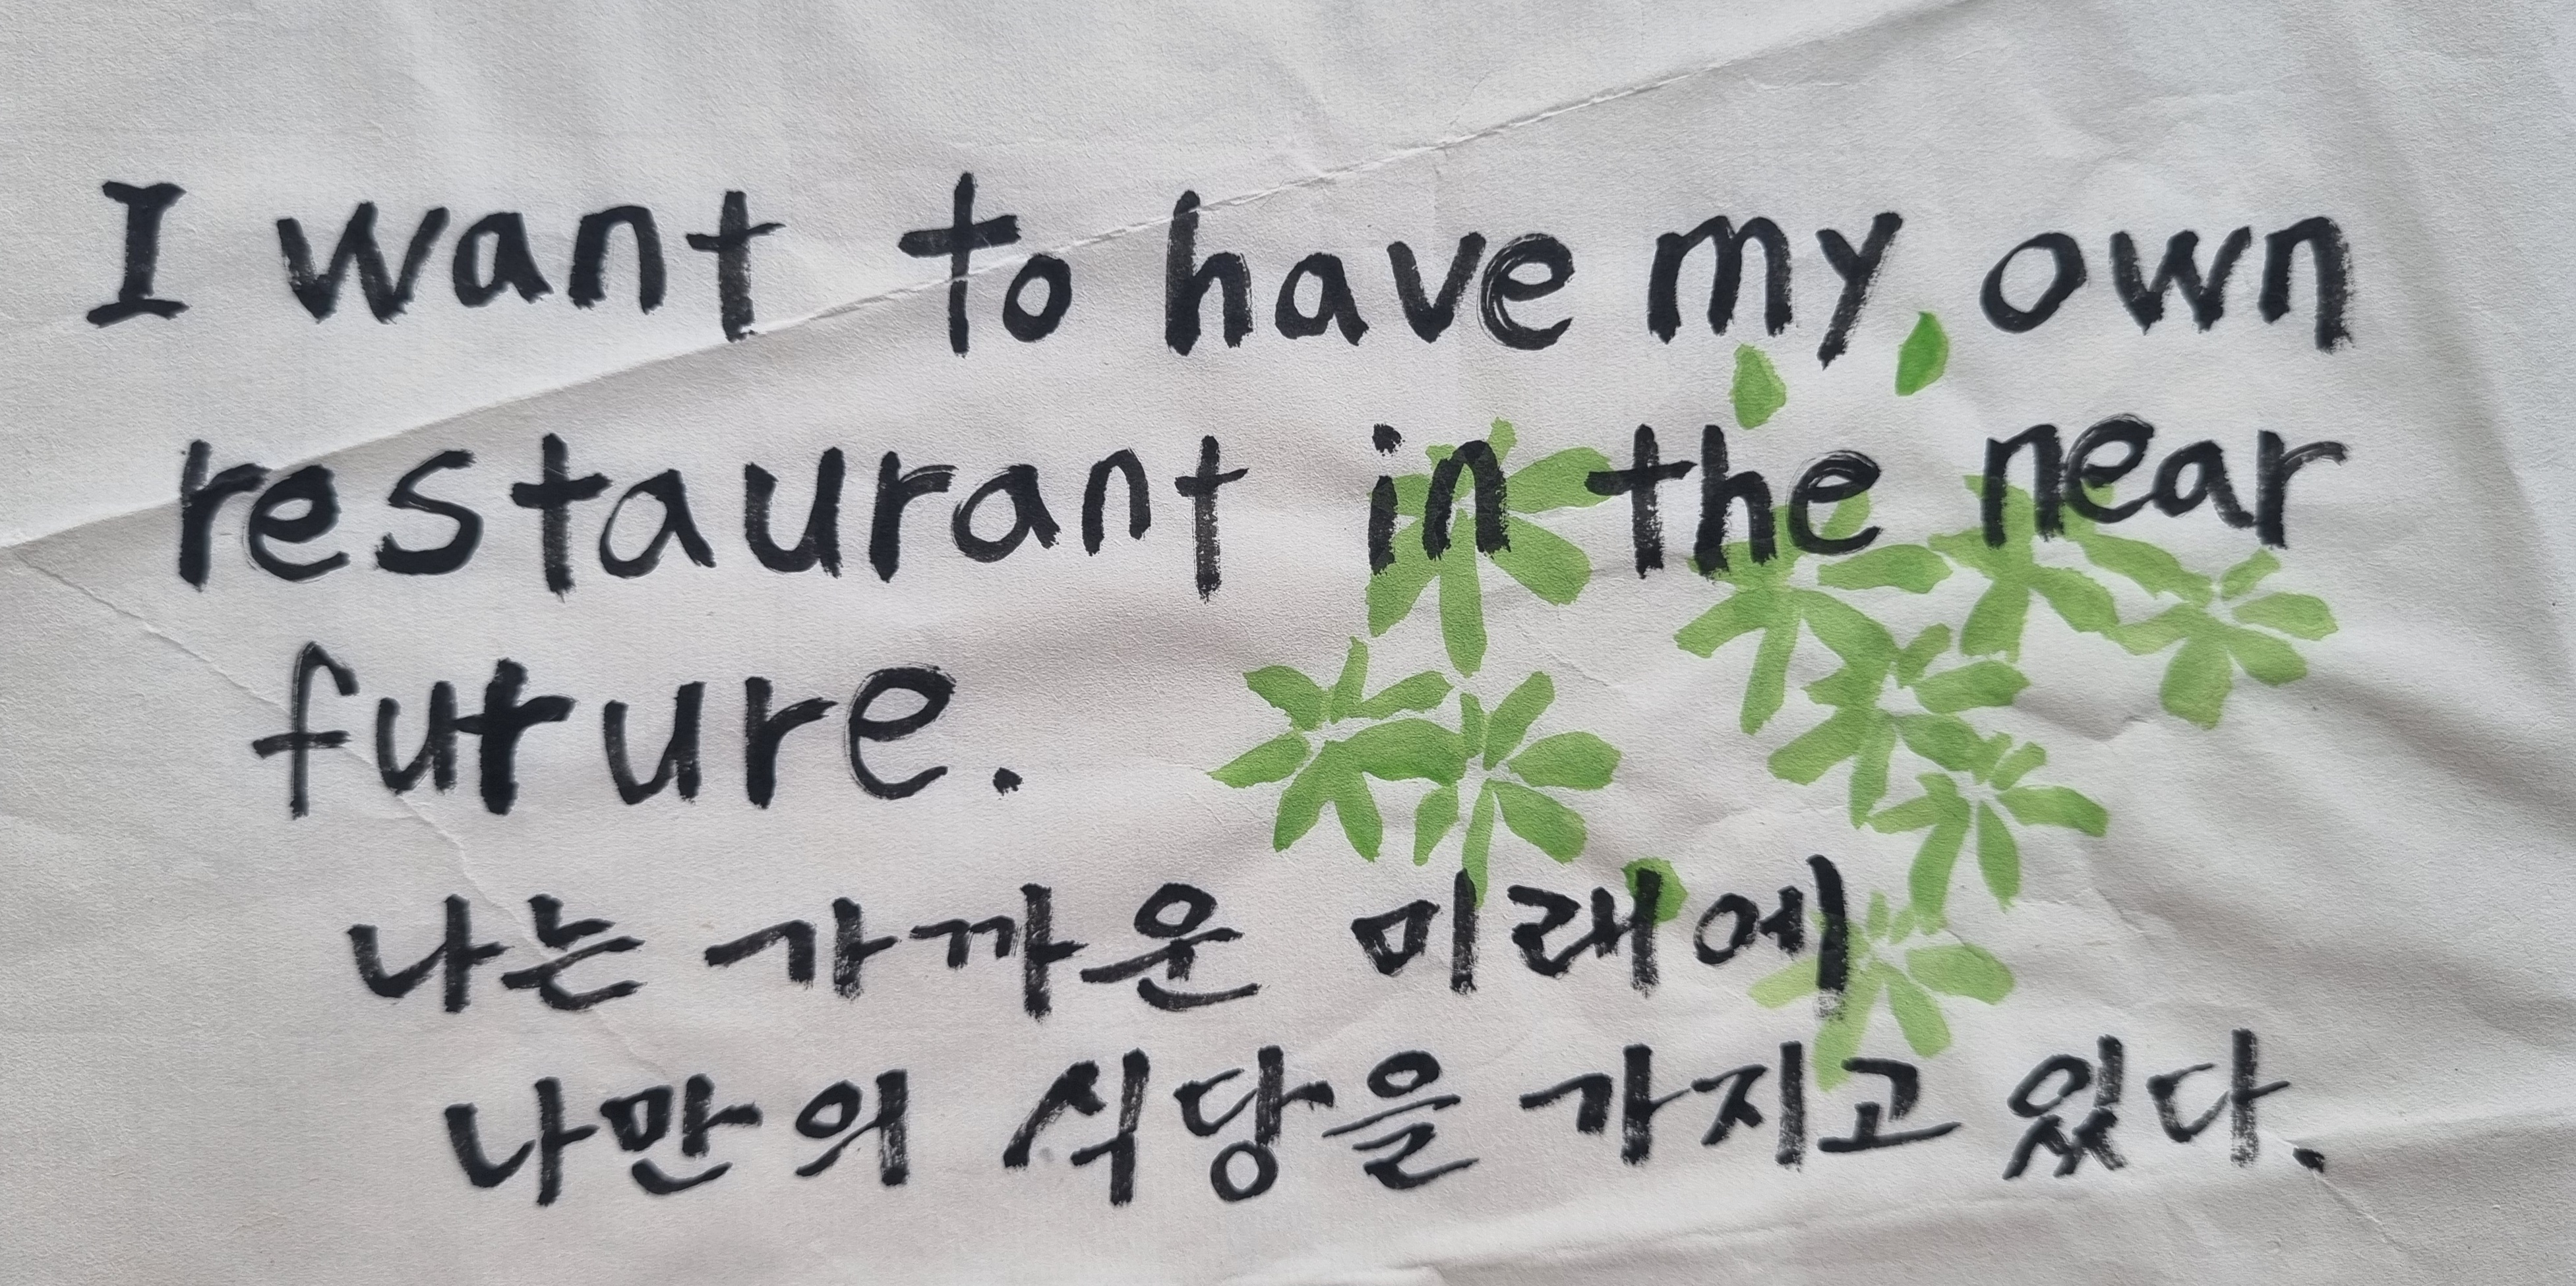 I want to have my own
restaurant in the near
future.
나는 가까운 미래에
나만의 식당을 가지고 있다.